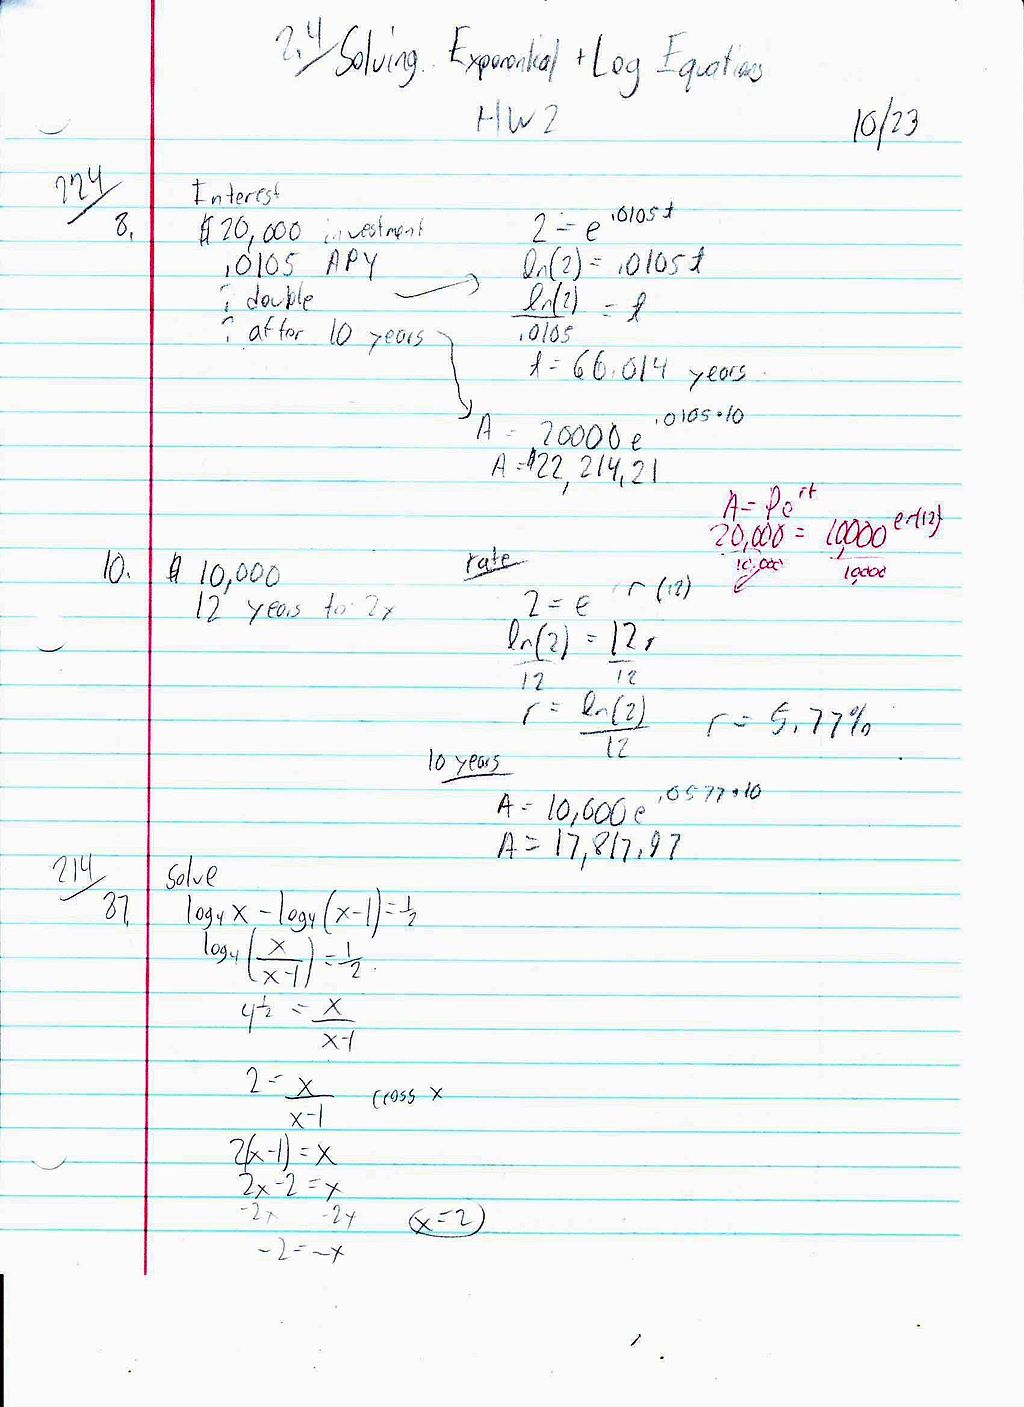 2.4 Solving Exponential + Log Equations
HW 2
10/23
224/
8.
Interest
$20,000 investment
.0105 APY
? double
? after 10 years
2 = e^.0105t
ln(2) = .0105t
ln(2)/.0105 = t
t = 66.014 years
A = 20000e^.0105•10
A = $22,214.21
A = Pe^rt
20,000 = 10,000^er(12)
10,000 10,000
10.
$ 10,000
12 years to 2x
rate
2 = e^r(12)
ln(2) = 12r
12 12
r = ln(2)/12 r = 5.77%
10 years
A = 10,000e^.0577•10
A = 17,817.97
214/
37.
Solve
log₄x - log₄(x-1) = 1/2
log₄(x/(x-1)) = 1/2
4^1/2 = x/(x-1)
2 = x/(x-1) cross x
2(x-1) = x
2x-2 = x
-2x -2x
x=2
-2 = -x